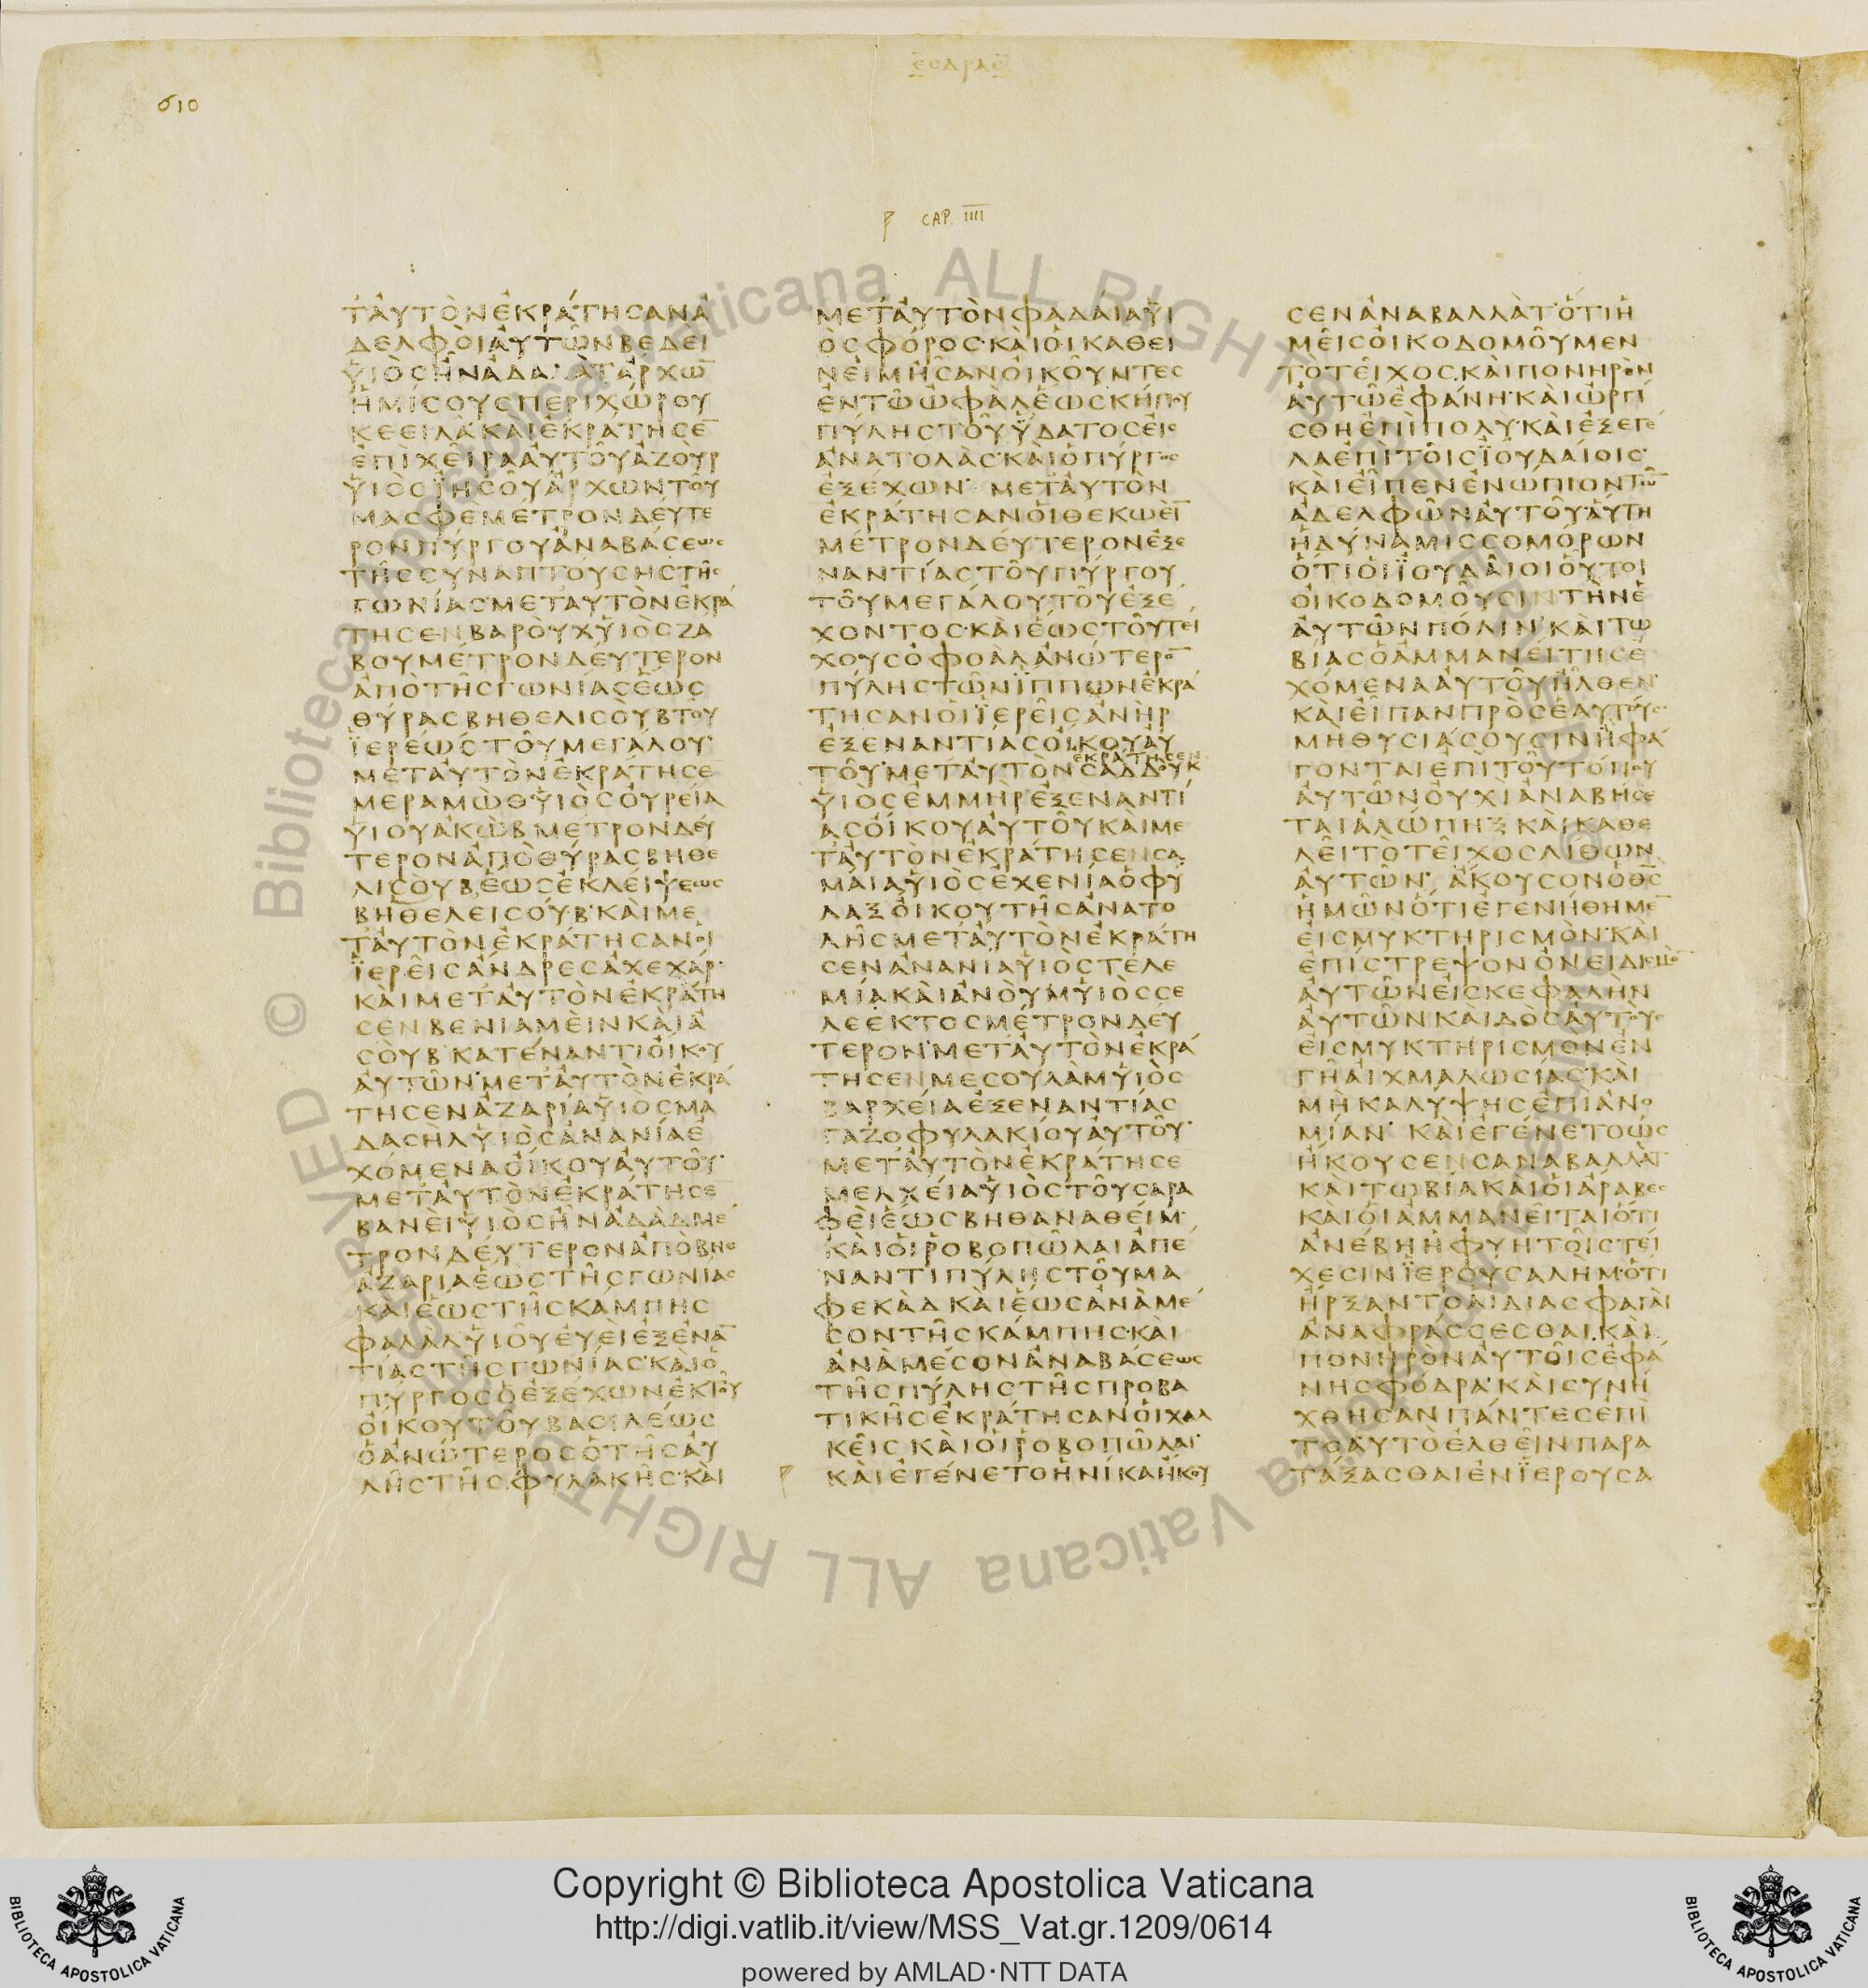 ΕΣΔΡΑΣ
610
CAP. IIII
ΤΑΥΤΟΝΕΚΡΑΤΗСΑΝΑ
ΔΕΛΦΟΙΑΥΤΩΝΒΕΔΕΙ
ΥΙΟСΗΝΑΔΑ ΑΤΑΡΧΩ̅
ΗΜΙСΟΥСΠΕΡΙΧΩΡΟΥ
ΚΕΕΙΛΑΚΑΙΕΚΡΑΤΗСΕ̅
ΕΠΙΧΕΙΡΑΑΥΤΟΥΑΖΟΥΡ
ΥΙΟСΙΗСΟΥΑΡΧΩΝΤΟΥ
ΜΑСΦΕΜΕΤΡΟΝΔΕΥΤΕ
ΡΟΝΠΥΡΓΟΥΑΝΑΒΑСΕΩС
ΤΗССΥΝΑΠΤΟΥСΗСΤΗС
ΓΩΝΙΑСΜΕΤΑΥΤΟΝΕΚΡΑ
ΤΗСΕΝΒΑΡΟΥΧΥΙΟСΖΑ
ΒΟΥΜΕΤΡΟΝΔΕΥΤΕΡΟΝ
ΑΠΟΤΗСΓΩΝΙΑСΕΩС
ΘΥΡΑСΒΗΘΕΛΙСΟΥΒΤΟΥ
ΙΕΡΕΩСΤΟΥΜΕΓΑΛΟΥ
ΜΕΤΑΥΤΟΝΕΚΡΑΤΗСΕ̅
ΜΕΡΑΜΩΘΥΙΟСΟΥΡΕΙΑ
ΥΙΟΥΑΚΩΒΜΕΤΡΟΝΔΕΥ
ΤΕΡΟΝΑΠΟΘΥΡΑСΒΗΘΕ
ΛΙСΟΥΒΕΩСΕΚΛΕΙΨΕΩС
ΒΗΘΕΛΕΙСΟΥΒΚΑΙΜΕ
ΤΑΥΤΟΝΕΚΡΑΤΗСΑΝΟΙ
ΙΕΡΕΙСΑΝΔΡΕСΑΧΕΧΑΡ
ΚΑΙΜΕΤΑΥΤΟΝΕΚΡΑΤΗ
СΕΝΒΕΝΙΑΜΕΙΝΚΑΙΑ
СΟΥΒΚΑΤΕΝΑΝΤΙΟΙΚΟΥ
ΑΥΤΩΝΜΕΤΑΥΤΟΝΕΚΡΑ
ΤΗСΕΝΑΖΑΡΙΑΥΙΟСΜΑ
ΔΑСΗΛΥΙΟСΑΝΑΝΙΑΕ
ΧΟΜΕΝΑΟΙΚΟΥΑΥΤΟΥ
ΜΕΤΑΥΤΟΝΕΚΡΑΤΗСΕ̅
ΒΑΝΕΙΥΙΟСΗΝΑΔΑΔΜΕ
ΤΡΟΝΔΕΥΤΕΡΟΝΑΠΟΒΗΘ
ΑΖΑΡΙΑΕΩСΤΗСΓΩΝΙΑС
ΚΑΙΕΩСΤΗСΚΑΜΠΗС
ΦΑΛΑΛΥΙΟΥΕΥΕΙΕΞΕΝΑ̅
ΤΙΑСΤΗСΓΩΝΙΑСΚΑΙΟ
ΠΥΡΓΟСΟΕΞΕΧΩΝΕΚΤΟΥ
ΟΙΚΟΥΤΟΥΒΑСΙΛΕΩС
ΟΑΝΩΤΕΡΟСΟΤΗСΑΥ
ΛΗСΤΗСΦΥΛΑΚΗСΚΑΙ
ΜΕΤΑΥΤΟΝΦΑΔΑΙΑΥΙ
ΟСΦΟΡΟСΚΑΙΟΙΚΑΘΕΙ
ΝΕΙΜΗСΑΝΟΙΚΟΥΝΤΕС
ΕΝΤΩΩΦΑΛΕΩСΚΗΠΟΥ
ΠΥΛΗСΤΟΥΥΔΑΤΟСΕΙС
ΑΝΑΤΟΛΑСΚΑΙΟΠΥΡΓΟС
ΕΞΕΧΩΝ ΜΕΤΑΥΤΟΝ
ΕΚΡΑΤΗСΑΝΟΙΘΕΚΩΕΙ̅
ΜΕΤΡΟΝΔΕΥΤΕΡΟΝΕΞΕ
ΝΑΝΤΙΑСΤΟΥΠΥΡΓΟΥ
ΤΟΥΜΕΓΑΛΟΥΤΟΥΕΞΕ
ΧΟΝΤΟСΚΑΙΕΩСΤΟΥΤΕΙ
ΧΟΥСΟΦΟΑΛΑΝΩΤΕΡΟ̅
ΠΥΛΗСΤΩΝΙΠΠΩΝΕΚΡΑ
ΤΗСΑΝΟΙΙΕΡΕΙСΑΝΗΡ
ΕΞΕΝΑΝΤΙΑСΟΙΚΟΥΑΥ
ΕΚΡΑΤΗСΕΝ
ΤΟΥΜΕΤΑΥΤΟΝСΑΔΔΟΥΚ
ΥΙΟСΕΜΜΗΡΕΞΕΝΑΝΤΙ
ΑСΟΙΚΟΥΑΥΤΟΥΚΑΙΜΕ
ΤΑΥΤΟΝΕΚΡΑΤΗСΕΝСΑ
ΜΑΙΑΥΙΟСΕΧΕΝΙΑΟΦΥ
ΛΑΞΟΙΚΟΥΤΗСΑΝΑΤΟ
ΛΗСΜΕΤΑΥΤΟΝΕΚΡΑΤΗ
СΕΝΑΝΑΝΙΑΥΙΟСΤΕΛΕ
ΜΙΑΚΑΙΑΝΟΥΜΥΙΟССΕ
ΛΕΕΚΤΟСΜΕΤΡΟΝΔΕΥ
ΤΕΡΟΝΜΕΤΑΥΤΟΝΕΚΡΑ
ΤΗСΕΝΜΕСΟΥΛΑΜΥΙΟС
ΒΑΡΧΕΙΑΕΞΕΝΑΝΤΙΑС
ΓΑΖΟΦΥΛΑΚΙΟΥΑΥΤΟΥ
ΜΕΤΑΥΤΟΝΕΚΡΑΤΗСΕ̅
ΜΕΛΧΕΙΑΥΙΟСΤΟΥСΑΡΑ
ΦΕΙΕΩСΒΗΘΑΝΑΘΕΙΜ
ΚΑΙΟΙΡΟΒΟΠΩΛΑΙΑΠΕ
ΝΑΝΤΙΠΥΛΗСΤΟΥΜΑ
ΦΕΚΑΔΚΑΙΕΩСΑΝΑΜΕ
СΟΝΤΗСΚΑΜΠΗСΚΑΙ
ΑΝΑΜΕСΟΝΑΝΑΒΑСΕΩС
ΤΗСΠΥΛΗСΤΗСΠΡΟΒΑ
ΤΙΚΗСΕΚΡΑΤΗСΑΝΟΙΧΑΛ
ΚΕΙСΚΑΙΟΙΡΟΒΟΠΩΛΑΙ
ΚΑΙΕΓΕΝΕΤΟΗΝΙΚΑΗΚΟΥ
СΕΝΑΝΑΒΑΛΛΑΤΟΤΙΗ
ΜΕΙСΟΙΚΟΔΟΜΟΥΜΕΝ
ΤΟΤΕΙΧΟСΚΑΙΠΟΝΗΡΟΝ
ΑΥΤΩΕΦΑΝΗΚΑΙΩΡΓΙ
СΘΗΕΠΙΠΟΛΥΚΑΙΕΞΕΓΕ
ΛΑΕΠΙΤΟΙСΙΟΥΔΑΙΟΙС
ΚΑΙΕΙΠΕΝΕΝΩΠΙΟΝΤΩ̅
ΑΔΕΛΦΩΝΑΥΤΟΥΑΥΤΗ
ΗΔΥΝΑΜΙССΟΜΟΡΩΝ
ΟΤΙΟΙΙΟΥΔΑΙΟΙΟΥΤΟΙ
ΟΙΚΟΔΟΜΟΥСΙΝΤΗΝΕ
ΑΥΤΩΝΠΟΛΙΝΚΑΙΤΩ
ΒΙΑСΟΑΜΜΑΝΕΙΤΗСΕ
ΧΟΜΕΝΑΑΥΤΟΥΗΛΘΕΝ
ΚΑΙΕΙΠΑΝΠΡΟСΕΑΥΤΟΥС
ΜΗΘΥСΙΑСΟΥСΙΝΗΦΑ
ΓΟΝΤΑΙΕΠΙΤΟΥΤΟΠΟΥ
ΑΥΤΩΝΟΥΧΙΑΝΑΒΗСΕ
ΤΑΙΑΛΩΠΗΞΚΑΙΚΑΘΕ
ΛΕΙΤΟΤΕΙΧΟСΛΙΘΩΝ
ΑΥΤΩΝ ΑΚΟΥСΟΝΟΘ̅С̅
ΗΜΩΝΟΤΙΕΓΕΝΗΘΗΜΕ̅
ΕΙСΜΥΚΤΗΡΙСΜΟΝΚΑΙ
ΕΠΙСΤΡΕΨΟΝΟΝΕΙΔΙСΜΟ̅
ΑΥΤΩΝΕΙСΚΕΦΑΛΗΝ
ΑΥΤΩΝΚΑΙΔΟСΑΥΤΟΥС
ΕΙСΜΥΚΤΗΡΙСΜΟΝΕΝ
ΓΗΑΙΧΜΑΛΩСΙΑСΚΑΙ
ΜΗΚΑΛΥΨΗСΕΠΙΑΝΟ
ΜΙΑΝ ΚΑΙΕΓΕΝΕΤΟΩС
ΗΚΟΥСΕΝСΑΝΑΒΑΛΛΑΤ
ΚΑΙΤΩΒΙΑΚΑΙΟΙΑΡΑΒΕС
ΚΑΙΟΙΑΜΜΑΝΕΙΤΑΙΟΤΙ
ΑΝΕΒΗΗΦΥΗΤΟΙСΤΕΙ
ΧΕСΙΝΙΕΡΟΥСΑΛΗΜΟΤΙ
ΗΡΞΑΝΤΟΑΙΔΙΑСΦΑΓΑΙ
ΑΝΑΦΡΑССΕСΘΑΙΚΑΙ
ΠΟΝΗΡΟΝΑΥΤΟΙСΕΦΑ
ΝΗСΦΟΔΡΑΚΑΙСΥΝΗ
ΧΘΗСΑΝΠΑΝΤΕСΕΠΙ
ΤΟΑΥΤΟΕΛΘΕΙΝΠΑΡΑ
ΤΑΞΑСΘΑΙΕΝΙΕΡΟΥСΑ
© Biblioteca Apostolica Vaticana ALL RIGHTS RESERVED
Copyright © Biblioteca Apostolica Vaticana
http://digi.vatlib.it/view/MSS_Vat.gr.1209/0614
powered by AMLAD·NTT DATA
BIBLIOTECA APOSTOLICA VATICANA
BIBLIOTECA APOSTOLICA VATICANA